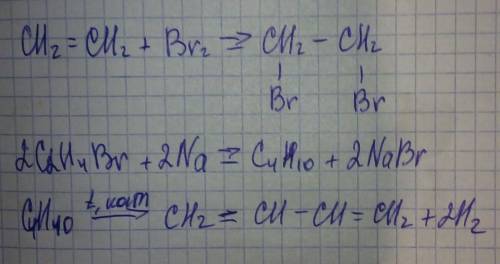 CH₂ = CH₂ + Br₂ → CH₂ – CH₂
Br Br
2C₂H₄Br + 2Na = C₄H₁₀ + 2NaBr
C₄H₁₀ t, кат CH₂ = CH – CH = CH₂ + 2H₂